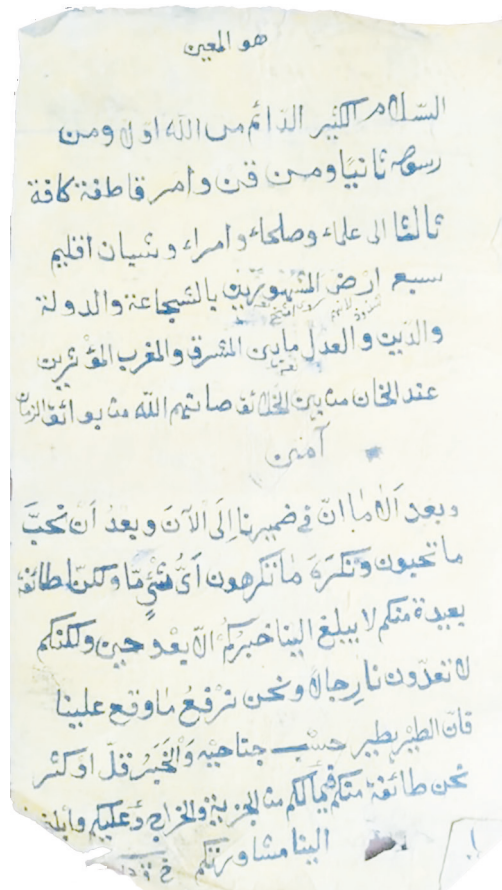 هو المعين
السّلام الكثير الدّائم من الله اولا ومن
رسوله ثانيًا ومن قن وامر قاطفة كافة
ثالثا الى علماء وصلحاء وامراء وشبان اقليم
سبع ارض المشهورين بالشجاعة والدولة
والدّين والعدل ما بين المشرق والمغرب المؤثرين
عند الخان من بين الخلائق صانهم الله من بوائق الزمان
آمين
وبعد آلا ما انّ في ضميرنا اِلَى الآنَ وبعدُ اَنْ نحبَّ
ما تحبون ونكرَهَ ما تكرهون اَىُّ شئٍ مّا ولكنّا طائفة
بعيدة منكم لا يبلغ الينا خبركُم الاّ بعْد حين ولكنكم
لا تعدّون نارجالا ونحن نرفعُ ما وقع علينا
فانّ الطيْر يطير حسْب جناحيْه وَالخَبَرُ قلّ او كثر
نحن طائفة منكم فيمالكم من الجزية والخراج وعليكم
الينا مشاورتكم